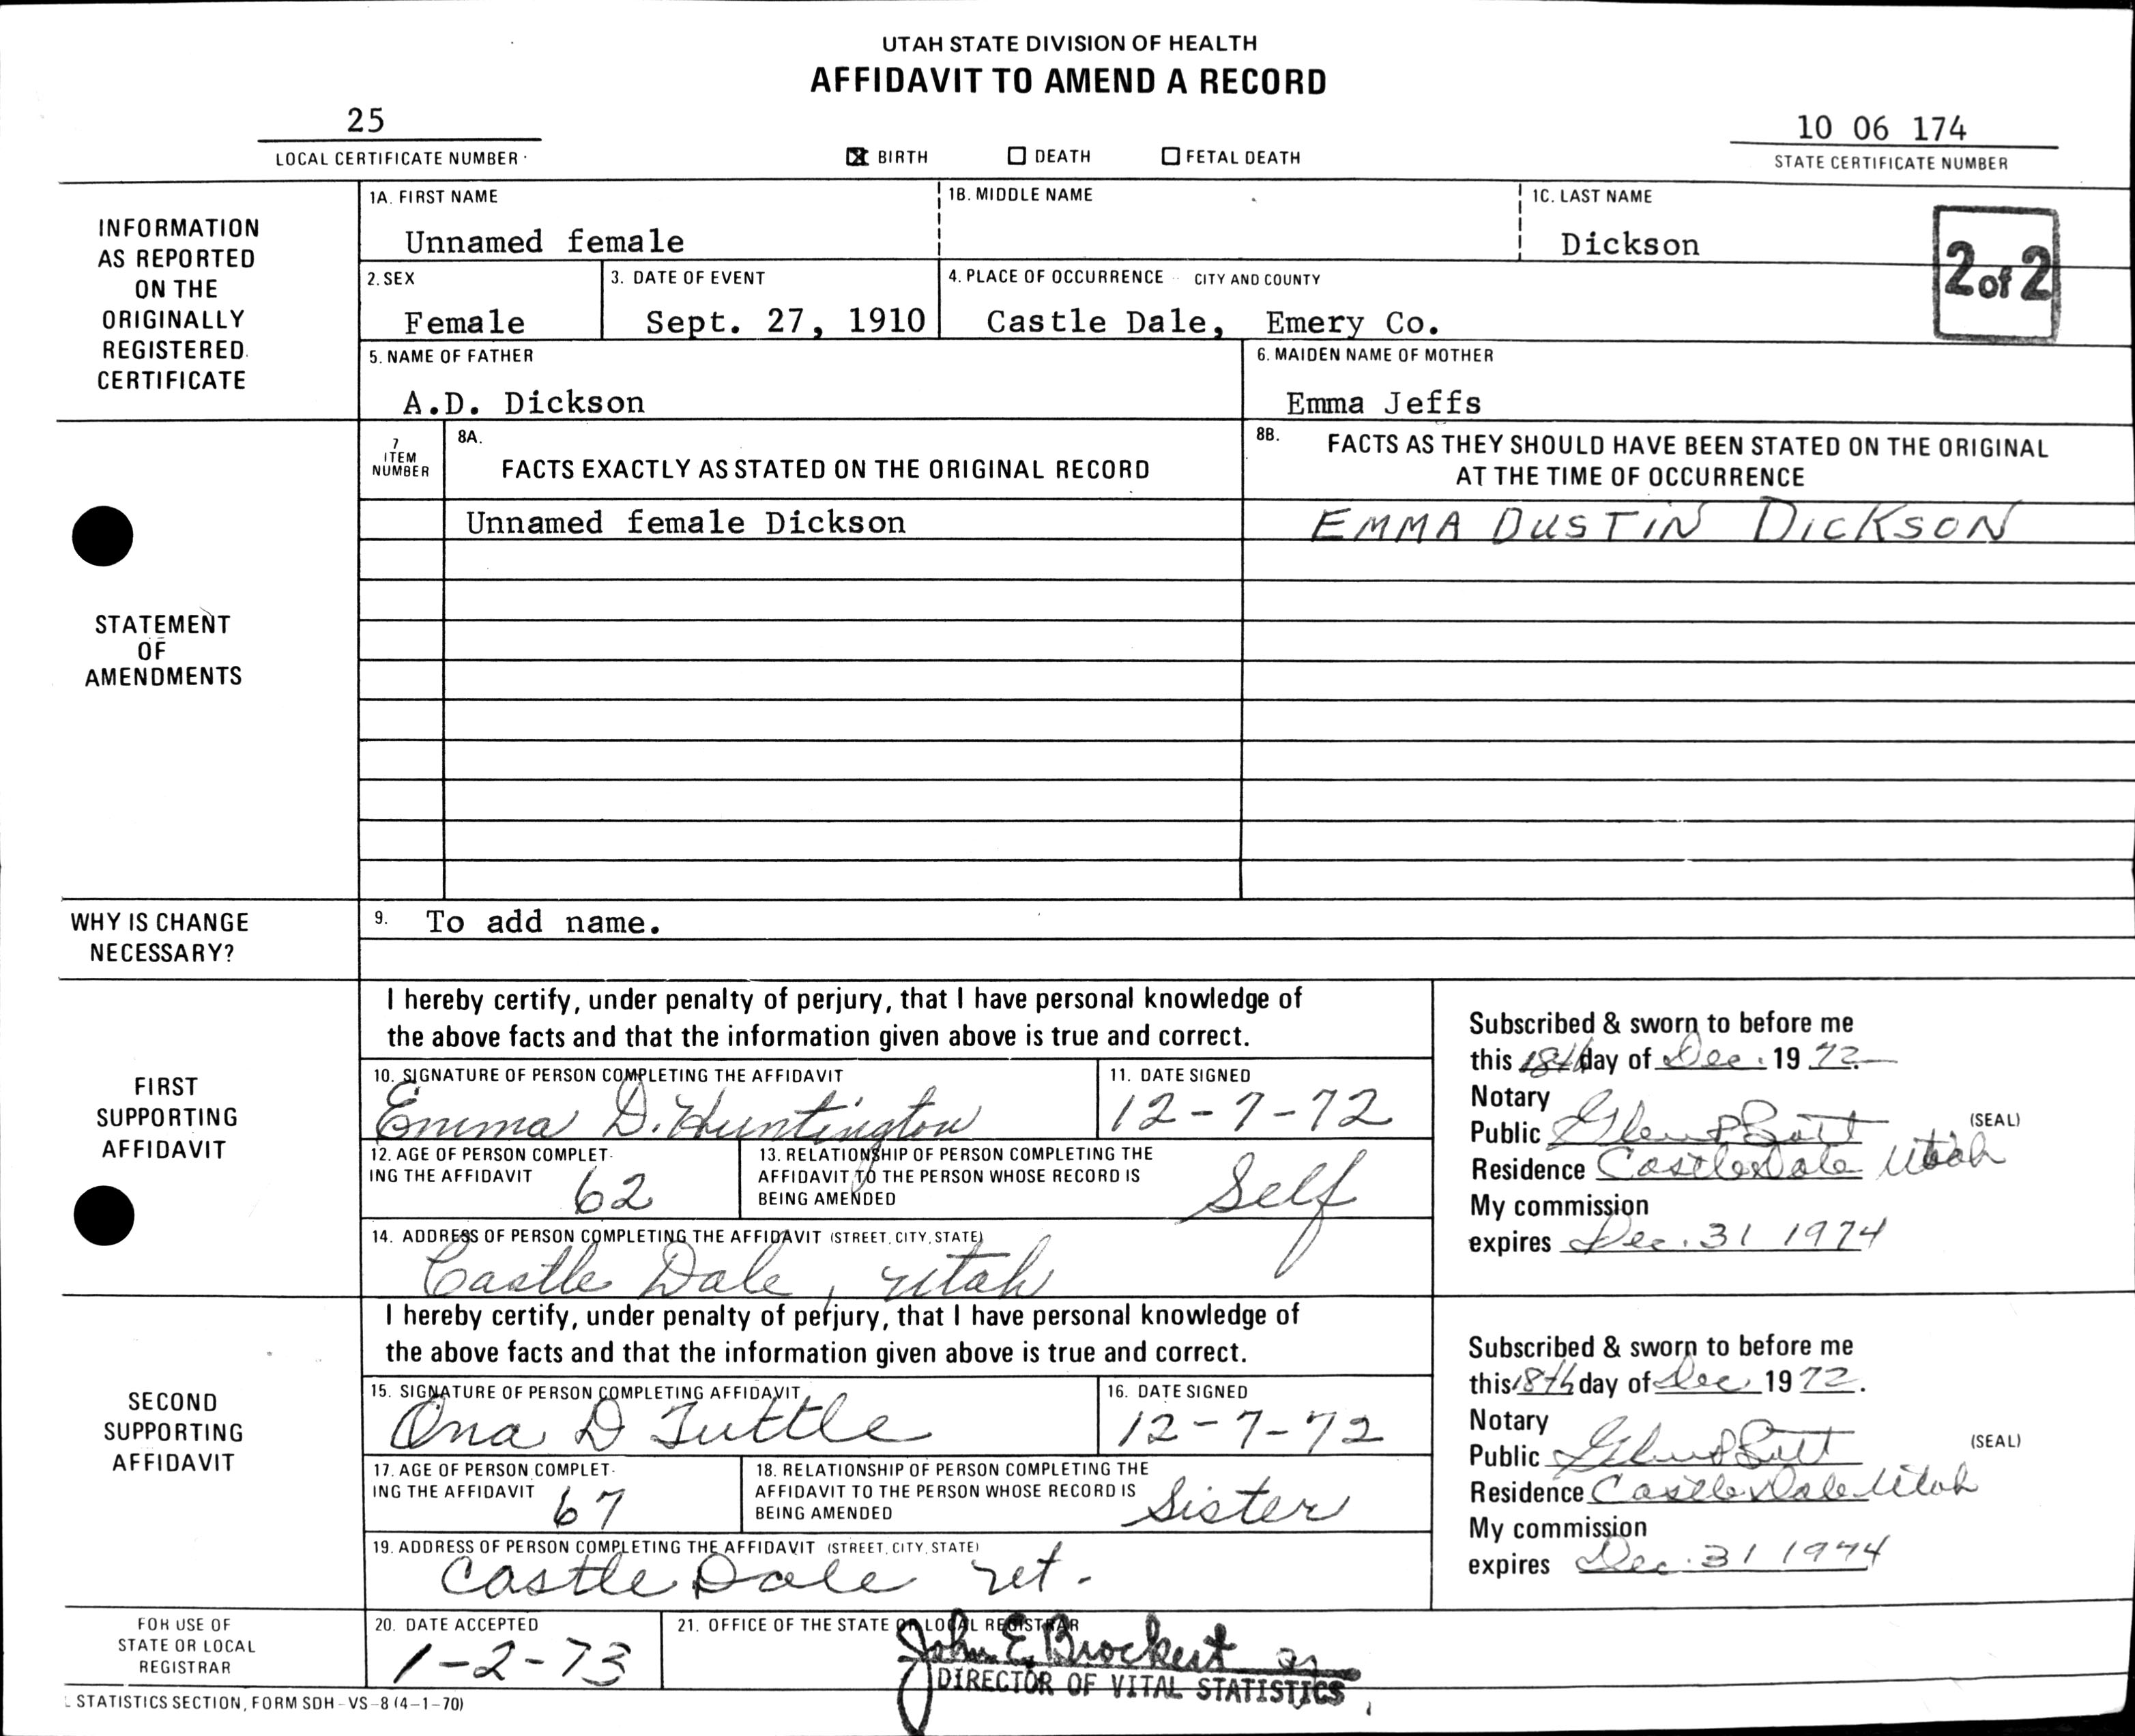 UTAH STATE DIVISION OF HEALTH
AFFIDAVIT TO AMEND A RECORD
25
LOCAL CERTIFICATE NUMBER
BIRTH DEATH FETAL DEATH
10 06 174
STATE CERTIFICATE NUMBER
INFORMATION
AS REPORTED
ON THE
ORIGINALLY
REGISTERED
CERTIFICATE
1A. FIRST NAME
Unnamed female
1B. MIDDLE NAME
1C. LAST NAME
Dickson
2 of 2
2. SEX
Female
3. DATE OF EVENT
Sept. 27, 1910
4. PLACE OF OCCURRENCE CITY AND COUNTY
Castle Dale, Emery Co.
5. NAME OF FATHER
A.D. Dickson
6. MAIDEN NAME OF MOTHER
Emma Jeffs
STATEMENT
OF
AMENDMENTS
7
ITEM
NUMBER
8A.
FACTS EXACTLY AS STATED ON THE ORIGINAL RECORD
8B.
FACTS AS THEY SHOULD HAVE BEEN STATED ON THE ORIGINAL
AT THE TIME OF OCCURRENCE
Unnamed female Dickson
EMMA DUSTIN DICKSON
WHY IS CHANGE
NECESSARY?
9. To add name.
FIRST
SUPPORTING
AFFIDAVIT
I hereby certify, under penalty of perjury, that I have personal knowledge of
the above facts and that the information given above is true and correct.
10. SIGNATURE OF PERSON COMPLETING THE AFFIDAVIT
Emma D. Huntington
11. DATE SIGNED
12-7-72
12. AGE OF PERSON COMPLET-
ING THE AFFIDAVIT
62
13. RELATIONSHIP OF PERSON COMPLETING THE
AFFIDAVIT TO THE PERSON WHOSE RECORD IS
BEING AMENDED
Self
14. ADDRESS OF PERSON COMPLETING THE AFFIDAVIT (STREET, CITY, STATE)
Castle Dale, Utah
Subscribed & sworn to before me
this 18th day of Dec. 1972
Notary
Public
(SEAL)
Residence Castle Dale Utah
My commission
expires Dec. 31 1974
SECOND
SUPPORTING
AFFIDAVIT
I hereby certify, under penalty of perjury, that I have personal knowledge of
the above facts and that the information given above is true and correct.
15. SIGNATURE OF PERSON COMPLETING AFFIDAVIT
Ona D Tuttle
16. DATE SIGNED
12-7-72
17. AGE OF PERSON COMPLET-
ING THE AFFIDAVIT
67
18. RELATIONSHIP OF PERSON COMPLETING THE
AFFIDAVIT TO THE PERSON WHOSE RECORD IS
BEING AMENDED
Sister
19. ADDRESS OF PERSON COMPLETING THE AFFIDAVIT (STREET, CITY, STATE)
Castle Dale Ut.
Subscribed & sworn to before me
this 18th day of Dec 1972.
Notary
Public
(SEAL)
Residence Castle Dale Utah
My commission
expires Dec. 31 1974
FOR USE OF
STATE OR LOCAL
REGISTRAR
20. DATE ACCEPTED
1-2-73
21. OFFICE OF THE STATE OR LOCAL REGISTRAR
John E. Brockert
DIRECTOR OF VITAL STATISTICS
STATISTICS SECTION, FORM SDH-VS-8 (4-1-70)